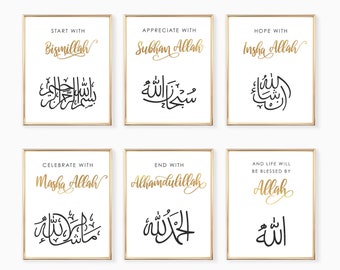 START WITH
Bismillah
بسم الله الرحمن الرحيم
APPRECIATE WITH
Subhan Allah
سبحان الله
HOPE WITH
Insha Allah
ان شاء الله
CELEBRATE WITH
Masha Allah
ما شاء الله
END WITH
Alhamdulillah
الحمد لله
AND LIFE WILL
BE BLESSED BY
Allah
الله